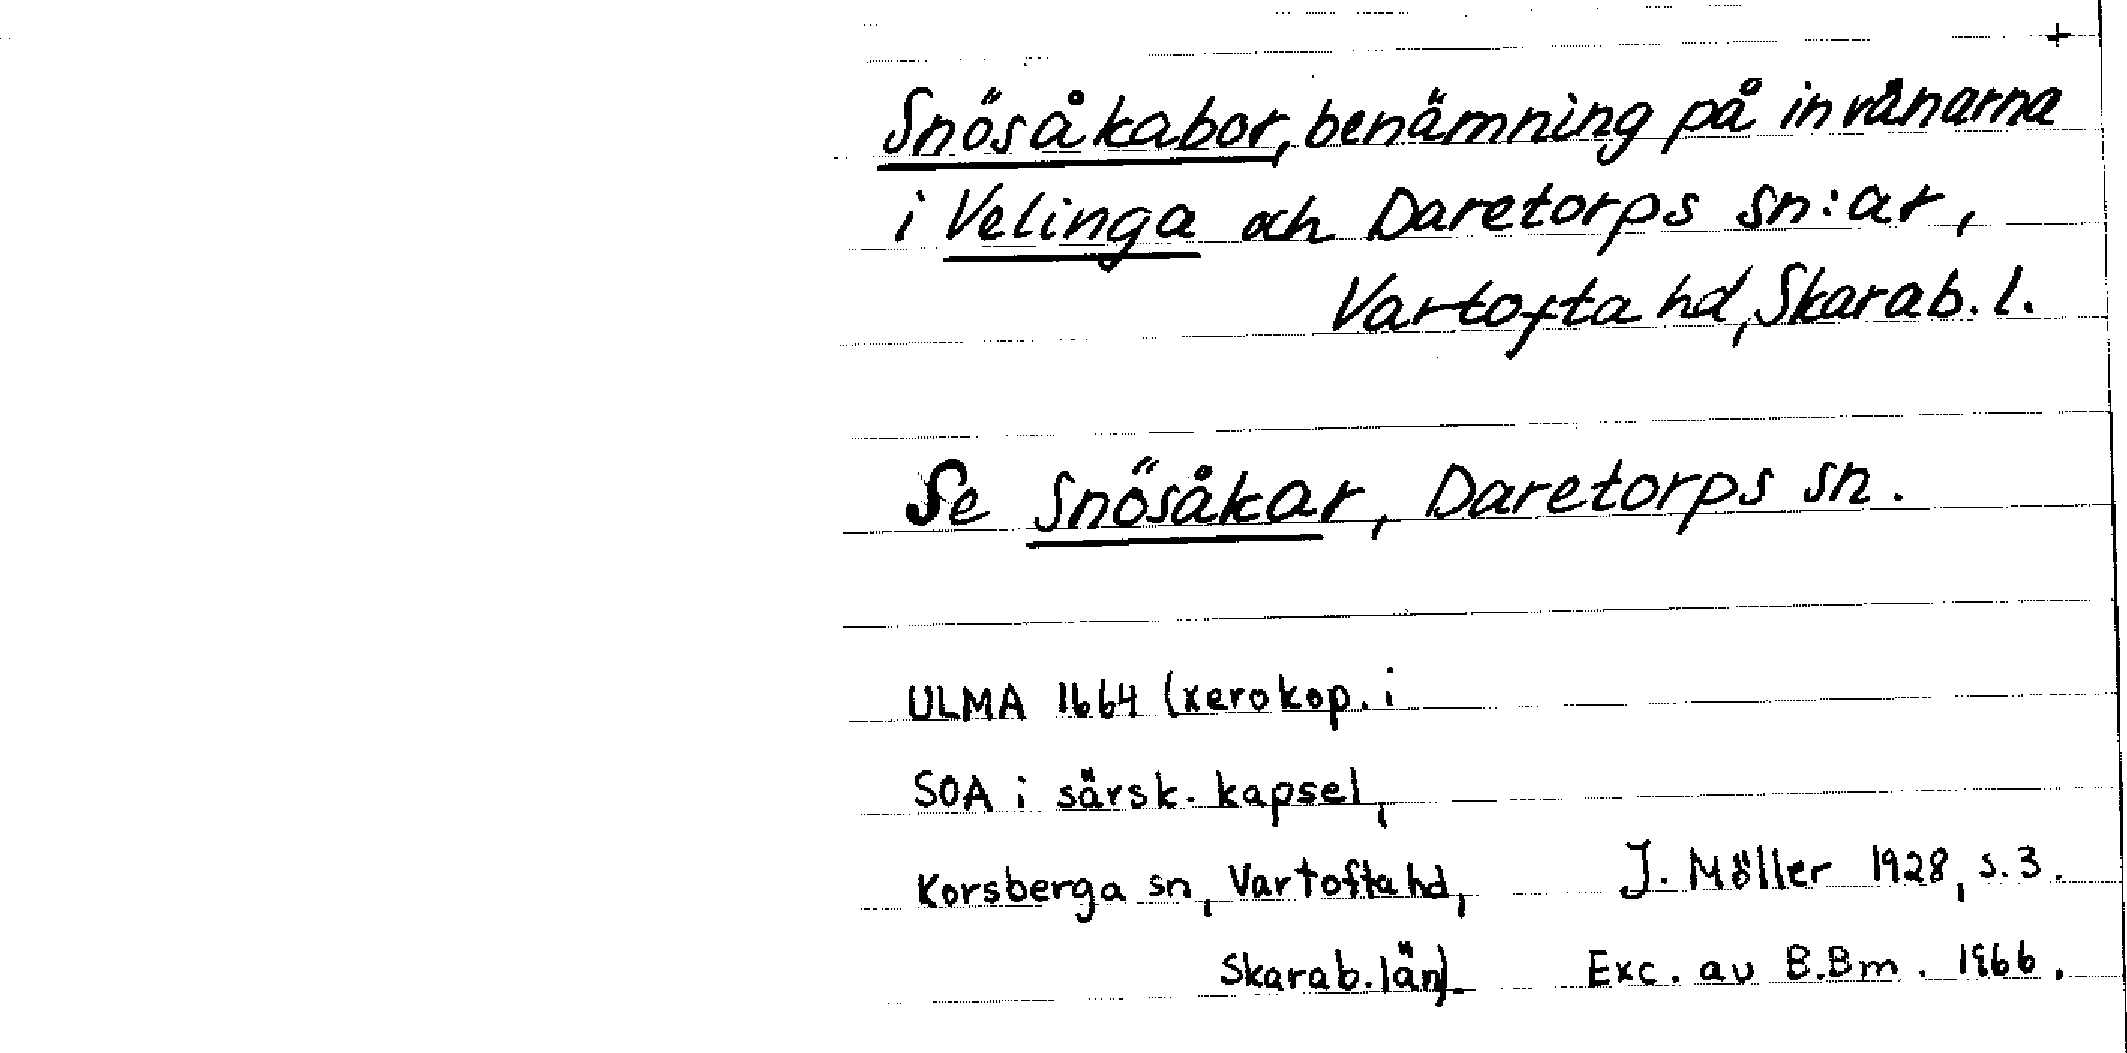 +
Snösåkabor, benämning på invånarna
i Velinga och Daretorps sn:ar,
Vartofta hd, Skarab. l.
Se Snösåkar, Daretorps sn.
ULMA 1664 (xerokop. i
SOA i särsk. kapsel,
Korsberga sn, Vartofta hd, J. Möller 1928, s. 3.
Skarab. län). Exc. av B.Bm. 1966.